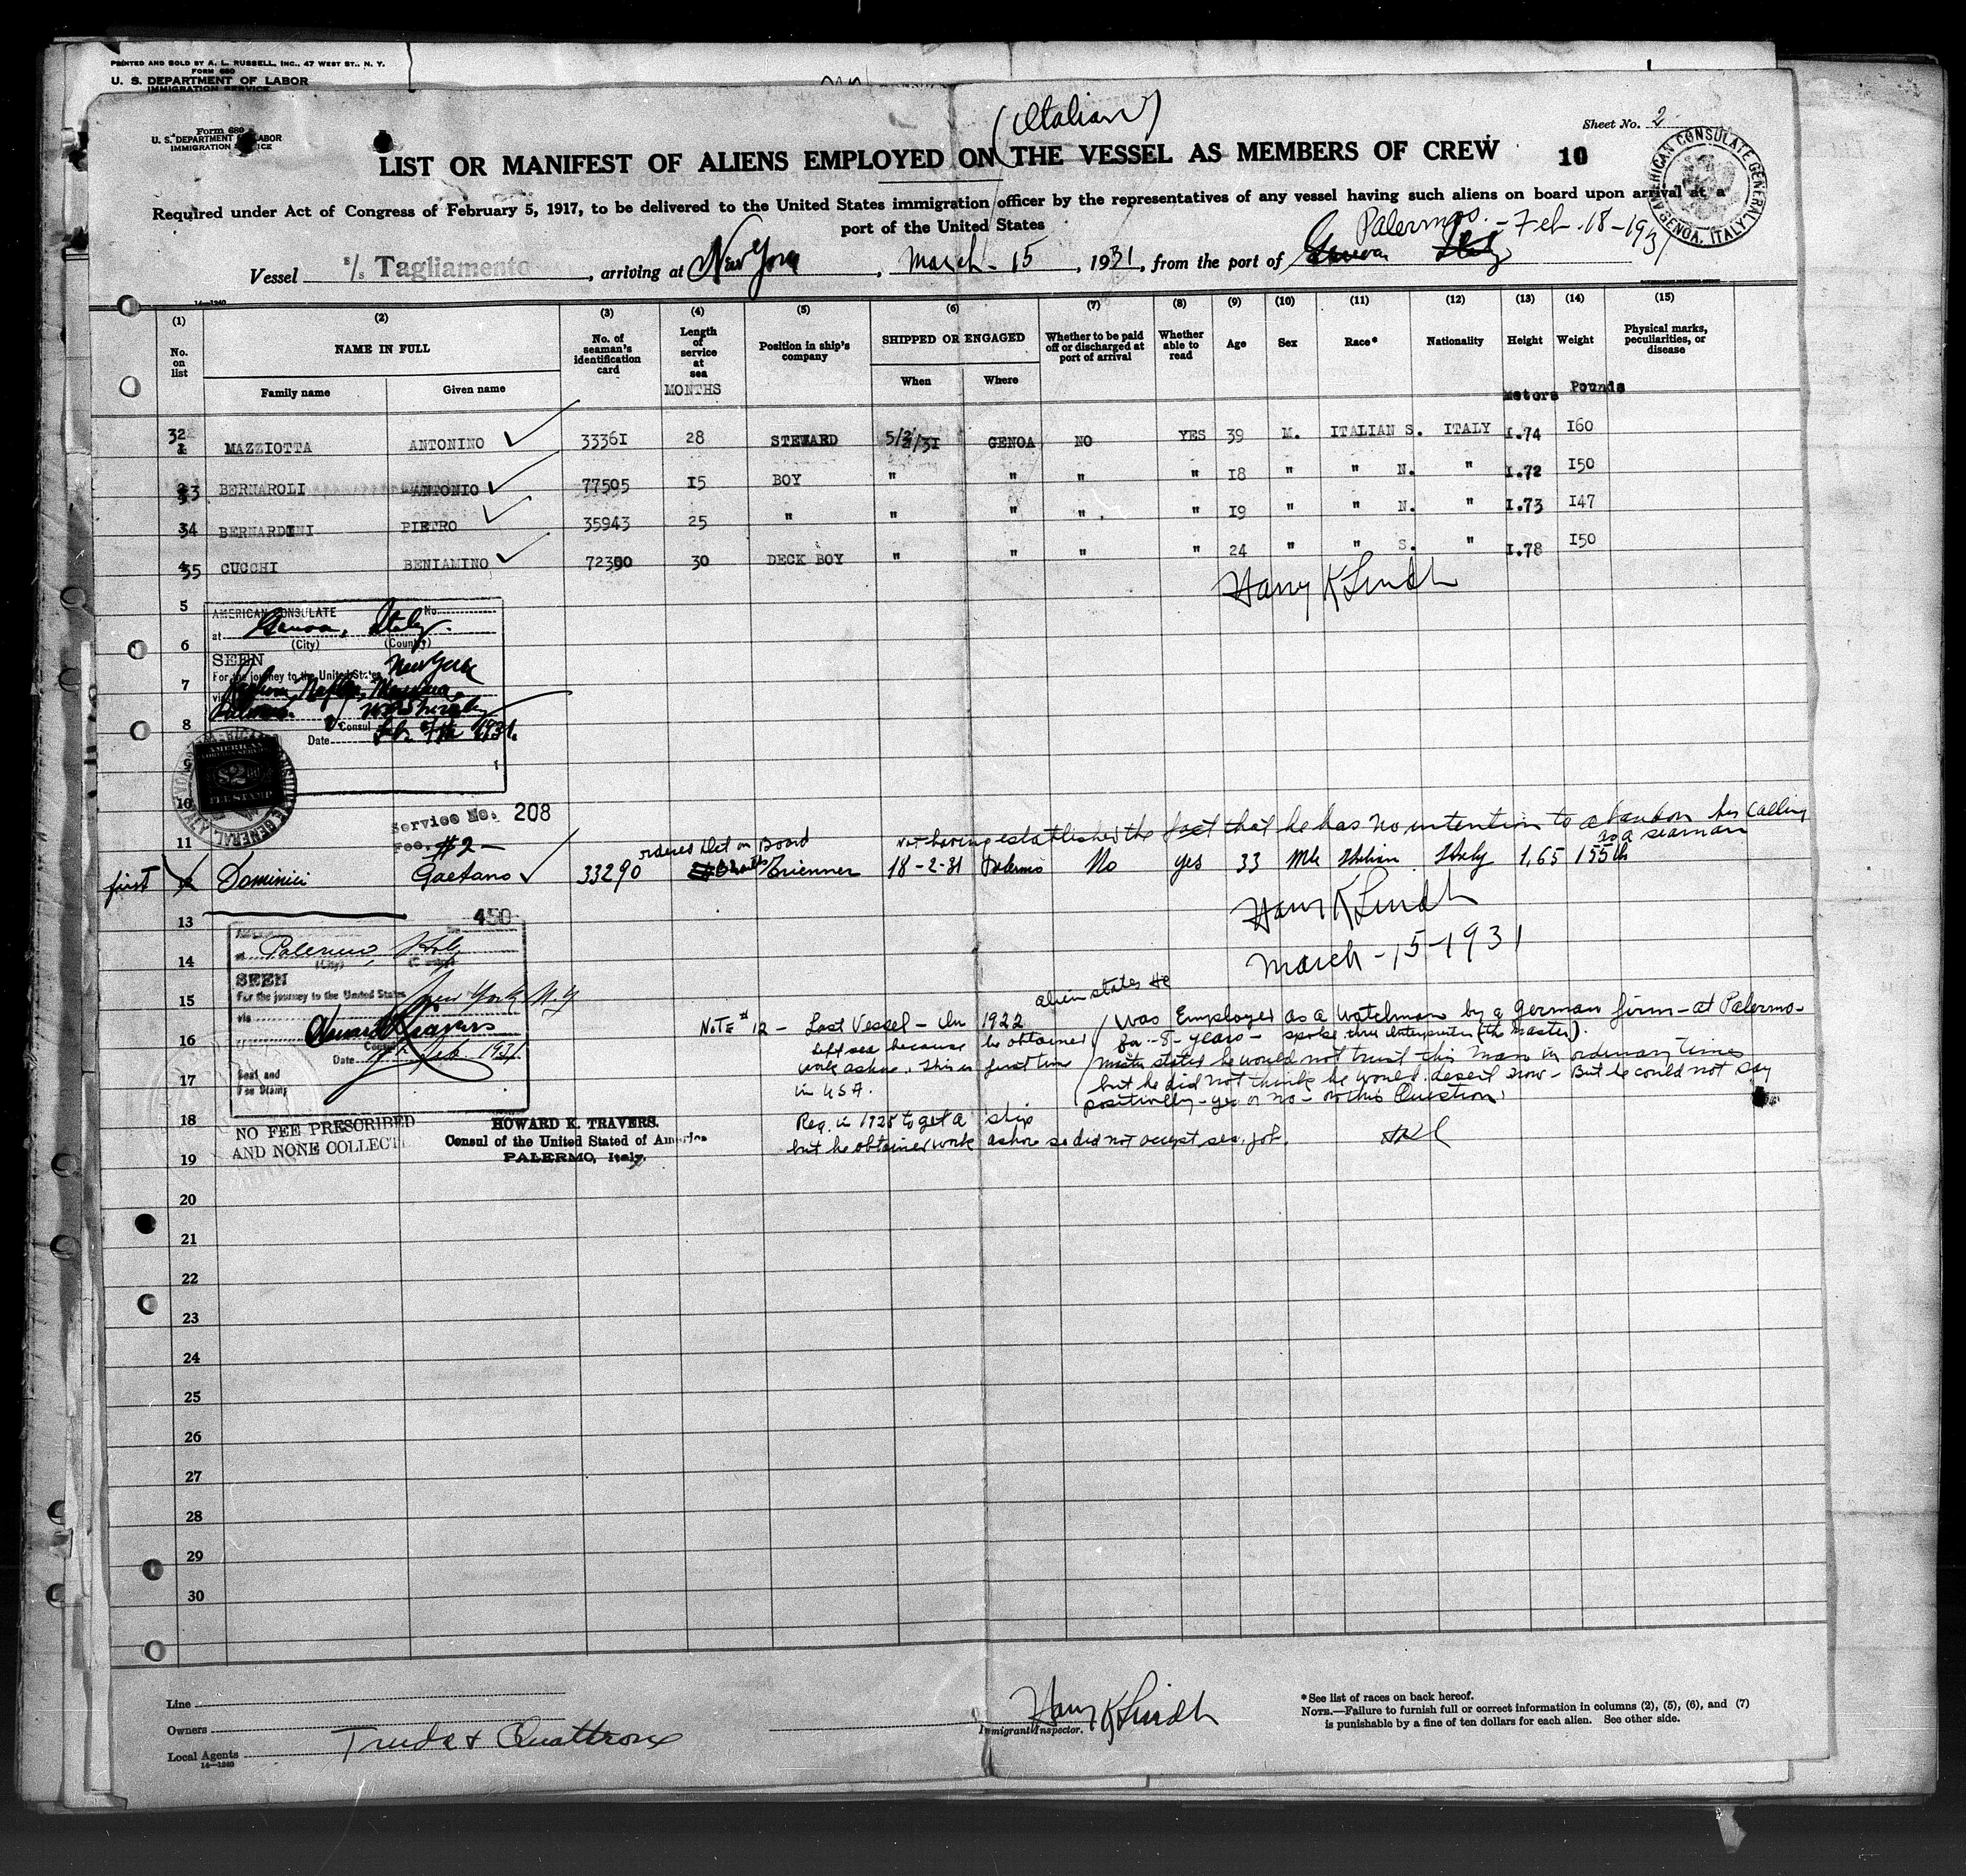 PRINTED AND SOLD BY A. L. RUSSELL, INC., 47 WEST ST., N. Y.
FORM 680
U. S. DEPARTMENT OF LABOR
IMMIGRATION SERVICE
Form 680
U. S. DEPARTMENT OF LABOR
IMMIGRATION SERVICE
(Italian)
Sheet No. 2
LIST OR MANIFEST OF ALIENS EMPLOYED ON THE VESSEL AS MEMBERS OF CREW 10
AMERICAN CONSULATE GENERAL GENOA, ITALY
Required under Act of Congress of February 5, 1917, to be delivered to the United States immigration officer by the representatives of any vessel having such aliens on board upon arrival at a
port of the United States
Palermo. - Feb. 18-1931
Vessel s/s Tagliamento, arriving at New York, March - 15, 1931, from the port of Genova Italy
14-1240
(1) (2) (3) (4) (5) (6) (7) (8) (9) (10) (11) (12) (13) (14) (15)
No. on list NAME IN FULL No. of seaman's identification card Length of service at sea Position in ship's company SHIPPED OR ENGAGED Whether to be paid off or discharged at port of arrival Whether able to read Age Sex Race* Nationality Height Weight Physical marks, peculiarities, or disease
Family name Given name MONTHS When Where Meters Pounds
32 1 MAZZIOTTA ANTONINO 33361 28 STEWARD 5/2/31 GENOA NO YES 39 M. ITALIAN S. ITALY 1.74 160
33 BERNAROLI ANTONIO 77505 15 BOY " " " " 18 " " N. " 1.72 150
34 BERNARDINI PIETRO 35943 25 " " " " " 19 " " N. " 1.73 147
4 35 CUCCHI BENIAMINO 72390 30 DECK BOY " " " " 24 " " S. " 1.78 150
Harry K Lindh
5
AMERICAN CONSULATE No.
at Genoa, Italy.
(City) (Country)
6
SEEN
For the journey to the United States New York
7
via Naples, Messina,
Palermo.
8
Consul
Date Feb. 7th 1931.
9
AMERICAN FOREIGN SERVICE $2 FEE STAMP
10
Service No. 208
Fee. #2-
11
ordered Det on Board not having established the fact that he has no intention to abandon his calling
as a seaman
first Dominici Gaetano 33290 18-2-31 Palermo No yes 33 Mle Italian Italy 1,65 155 lb
Harry K Lindh
March - 15-1931
13
450
at Palermo, Italy
(City) (Country)
14
SEEN
For the journey to the United States New York N.Y
15
via
Howard K Travers
16
Consul
Date 17th Feb. 1931
17
Seal and
Fee Stamp
alien states He
NOTE # 12 - Last Vessel - In 1922
left sea because he obtained
work ashore. This is first time
in USA.
Reg. in 1925 to get a ship
but he obtained work ashore so did not accept sea job.
was Employed as a watchman by a German firm - at Palermo -
for - 8 - years - spoke thru interpreter (the master).
Master states he would not trust this man in ordinary times
but he did not think he would desert now - But he could not say
positively - yes or no - to this Question.
HKL
18
NO FEE PRESCRIBED
AND NONE COLLECTED
HOWARD K. TRAVERS.
Consul of the United Stated of America
PALERMO, Italy.
19
20
21
22
23
24
25
26
27
28
29
30
Line
Owners
Local Agents
14-1240
Harry K Lindh
Immigrant Inspector.
*See list of races on back hereof.
NOTE.—Failure to furnish full or correct information in columns (2), (5), (6), and (7)
is punishable by a fine of ten dollars for each alien. See other side.